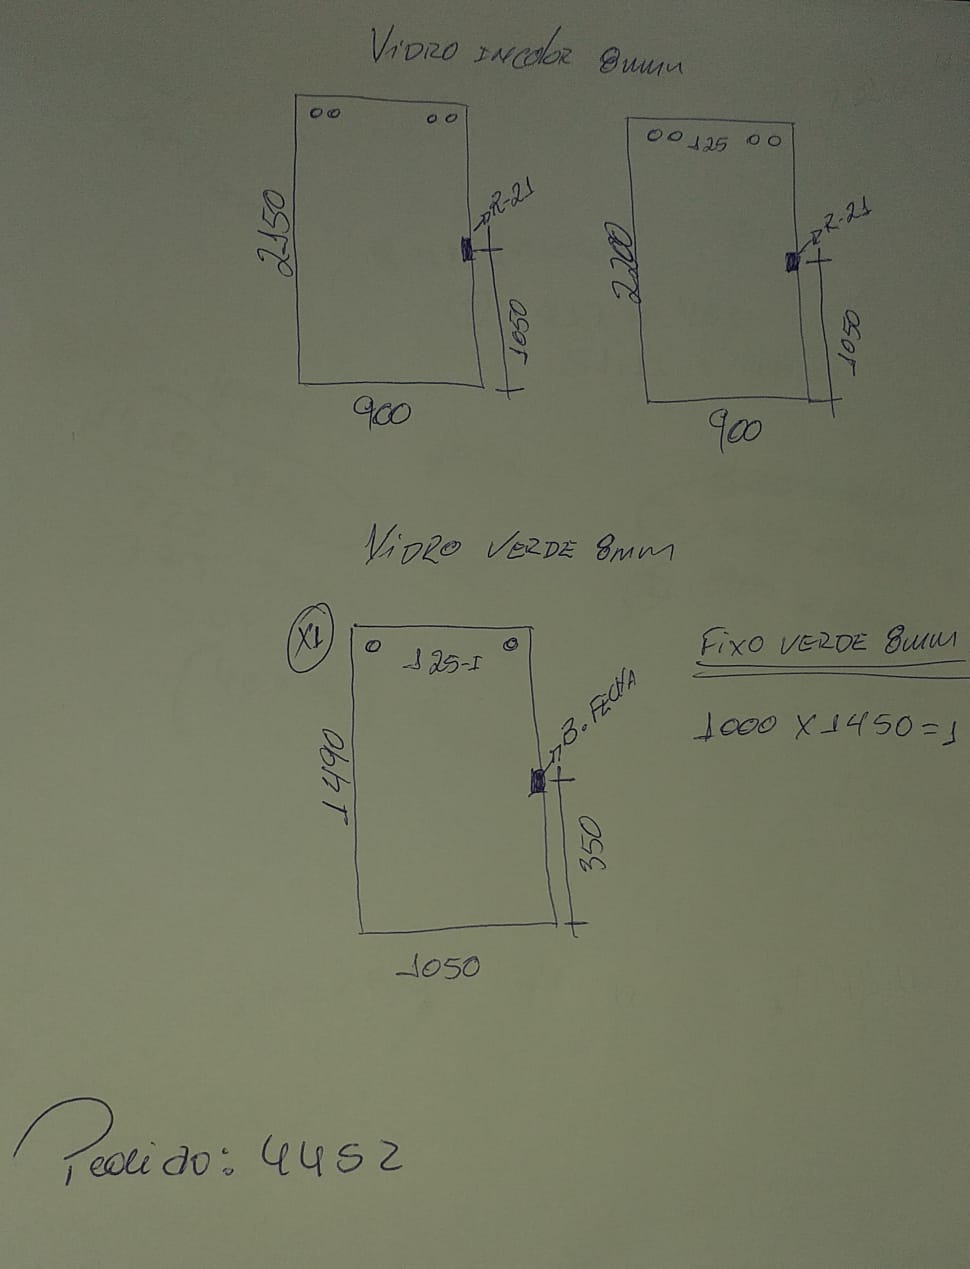 VIDRO INCOLOR 8mm
2150
R-21
1050
900
125
2200
R-21
1050
900
VIDRO VERDE 8mm
X1
125-I
1490
B. FECHA
350
1050
FIXO VERDE 8mm
1000 X 1450 = 1
Pedido: 4452